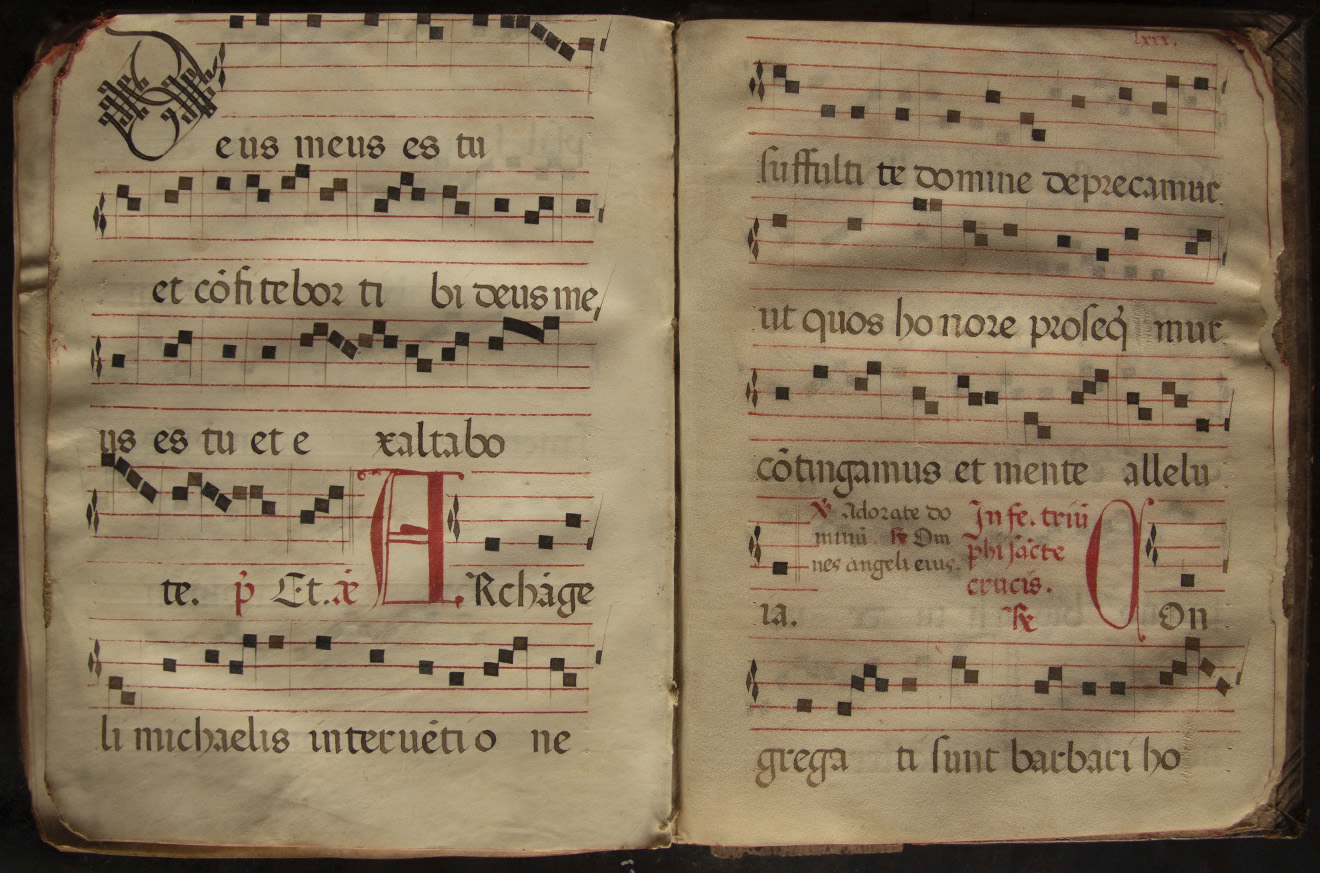 Deus meus es tu
et cōfitebor ti bi deus me
us es tu et e xaltabo
te. p̄ Et. x̄ ARchāge
li michaelis interuēti o ne
lxxx.
suffulti te domine deprecamur
ut quos honore proseq̄ mur
cōtingamus et mente allelu
ia. Adorate do
minū. Om
nes angeli eius.
In fe. triū
phi sācte
crucis.
COn
grega ti sunt barbari ho